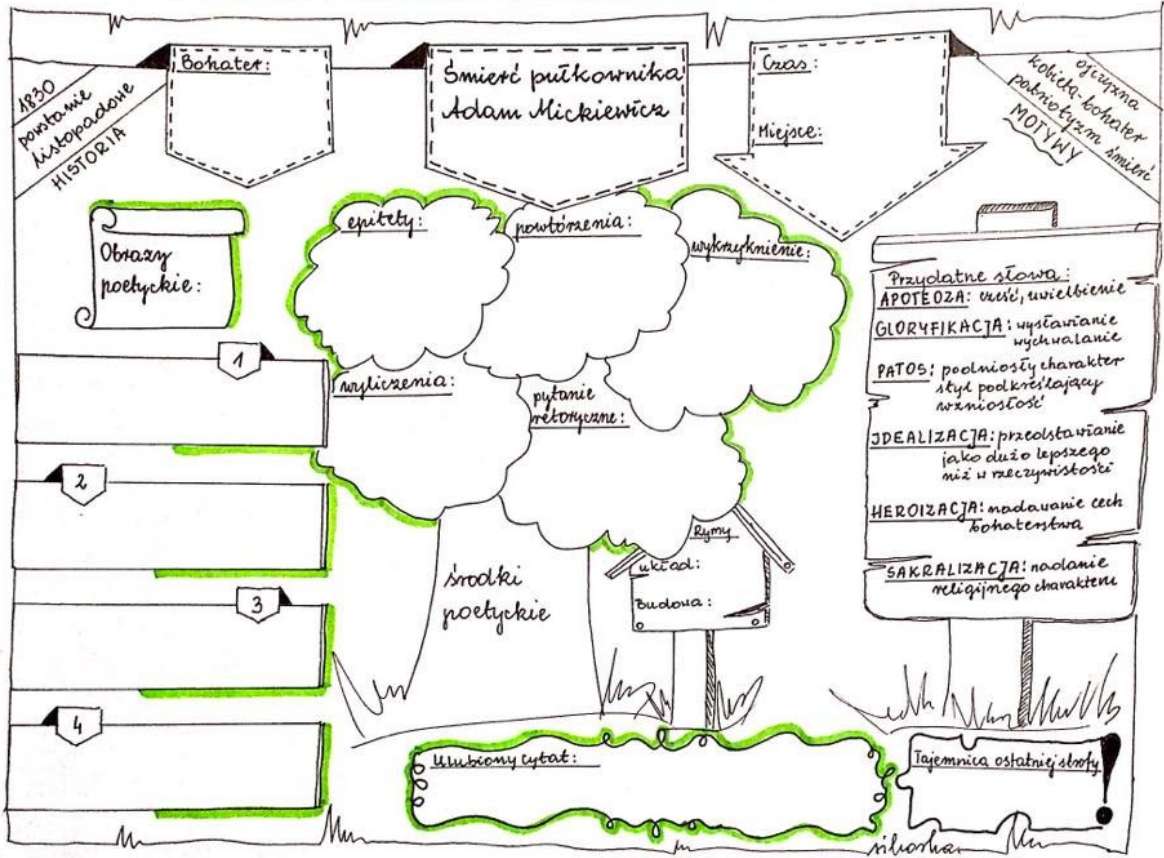 1830
powstanie
listopadowe
HISTORIA
Bohater:
Śmierć pułkownika
Adam Mickiewicz
Czas:
Miejsce:
ojczyzna
kobieta-bohater
patriotyzm śmierć
MOTYWY
Obrazy
poetyckie:
1
2
3
4
epitety:
powtórzenia:
wykrzyknienie:
wyliczenia:
pytanie
retoryczne:
środki
poetyckie
Rymy
układ:
Budowa:
Przydatne słowa:
APOTEOZA: cześć, uwielbienie
GLORYFIKACJA: wysławianie
wychwalanie
PATOS: podniosły charakter
styl podkreślający
wzniosłość
IDEALIZACJA: przedstawianie
jako dużo lepszego
niż w rzeczywistości
HEROIZACJA: nadawanie cech
bohaterstwa
SAKRALIZACJA: nadanie
religijnego charakteru
Ulubiony cytat:
Tajemnica ostatniej strofy
!